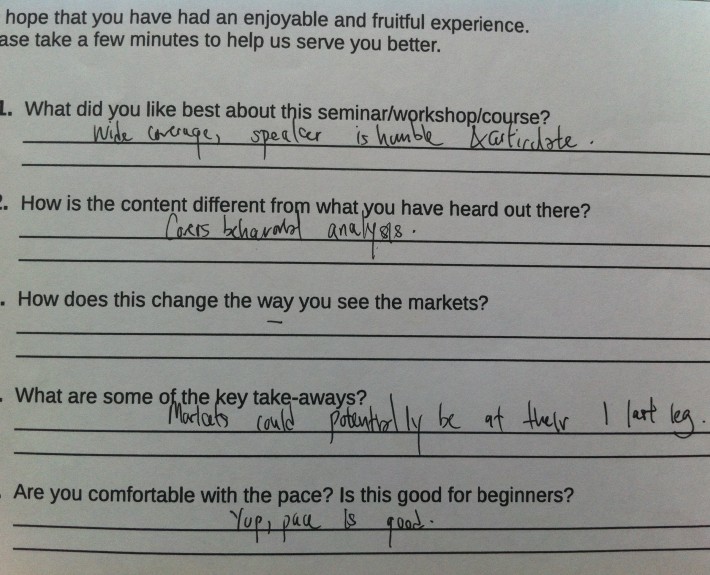 hope that you have had an enjoyable and fruitful experience.
ase take a few minutes to help us serve you better.
1. What did you like best about this seminar/workshop/course?
Wide coverage, speaker is humble & articulate.
2. How is the content different from what you have heard out there?
Covers behavioral analysis.
. How does this change the way you see the markets?
–
. What are some of the key take-aways?
Markets could potentially be at their 1 last leg.
Are you comfortable with the pace? Is this good for beginners?
Yup, pace is good.